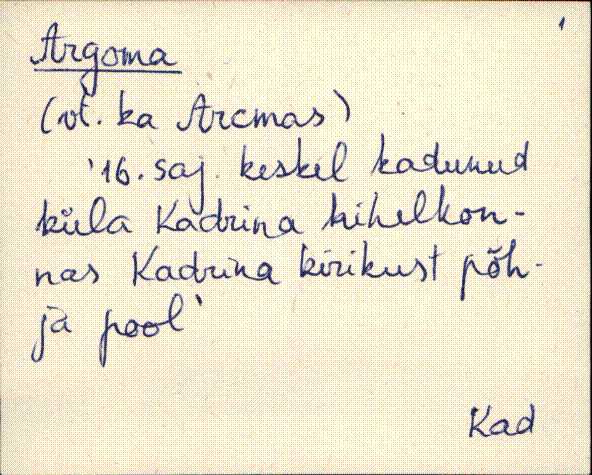 1
Argoma
(vt. ka Arcmas)
'16. saj. keskel kadunud
küla Kadrina kihelkon-
nas Kadrina kirikust põh-
ja pool'
Kad